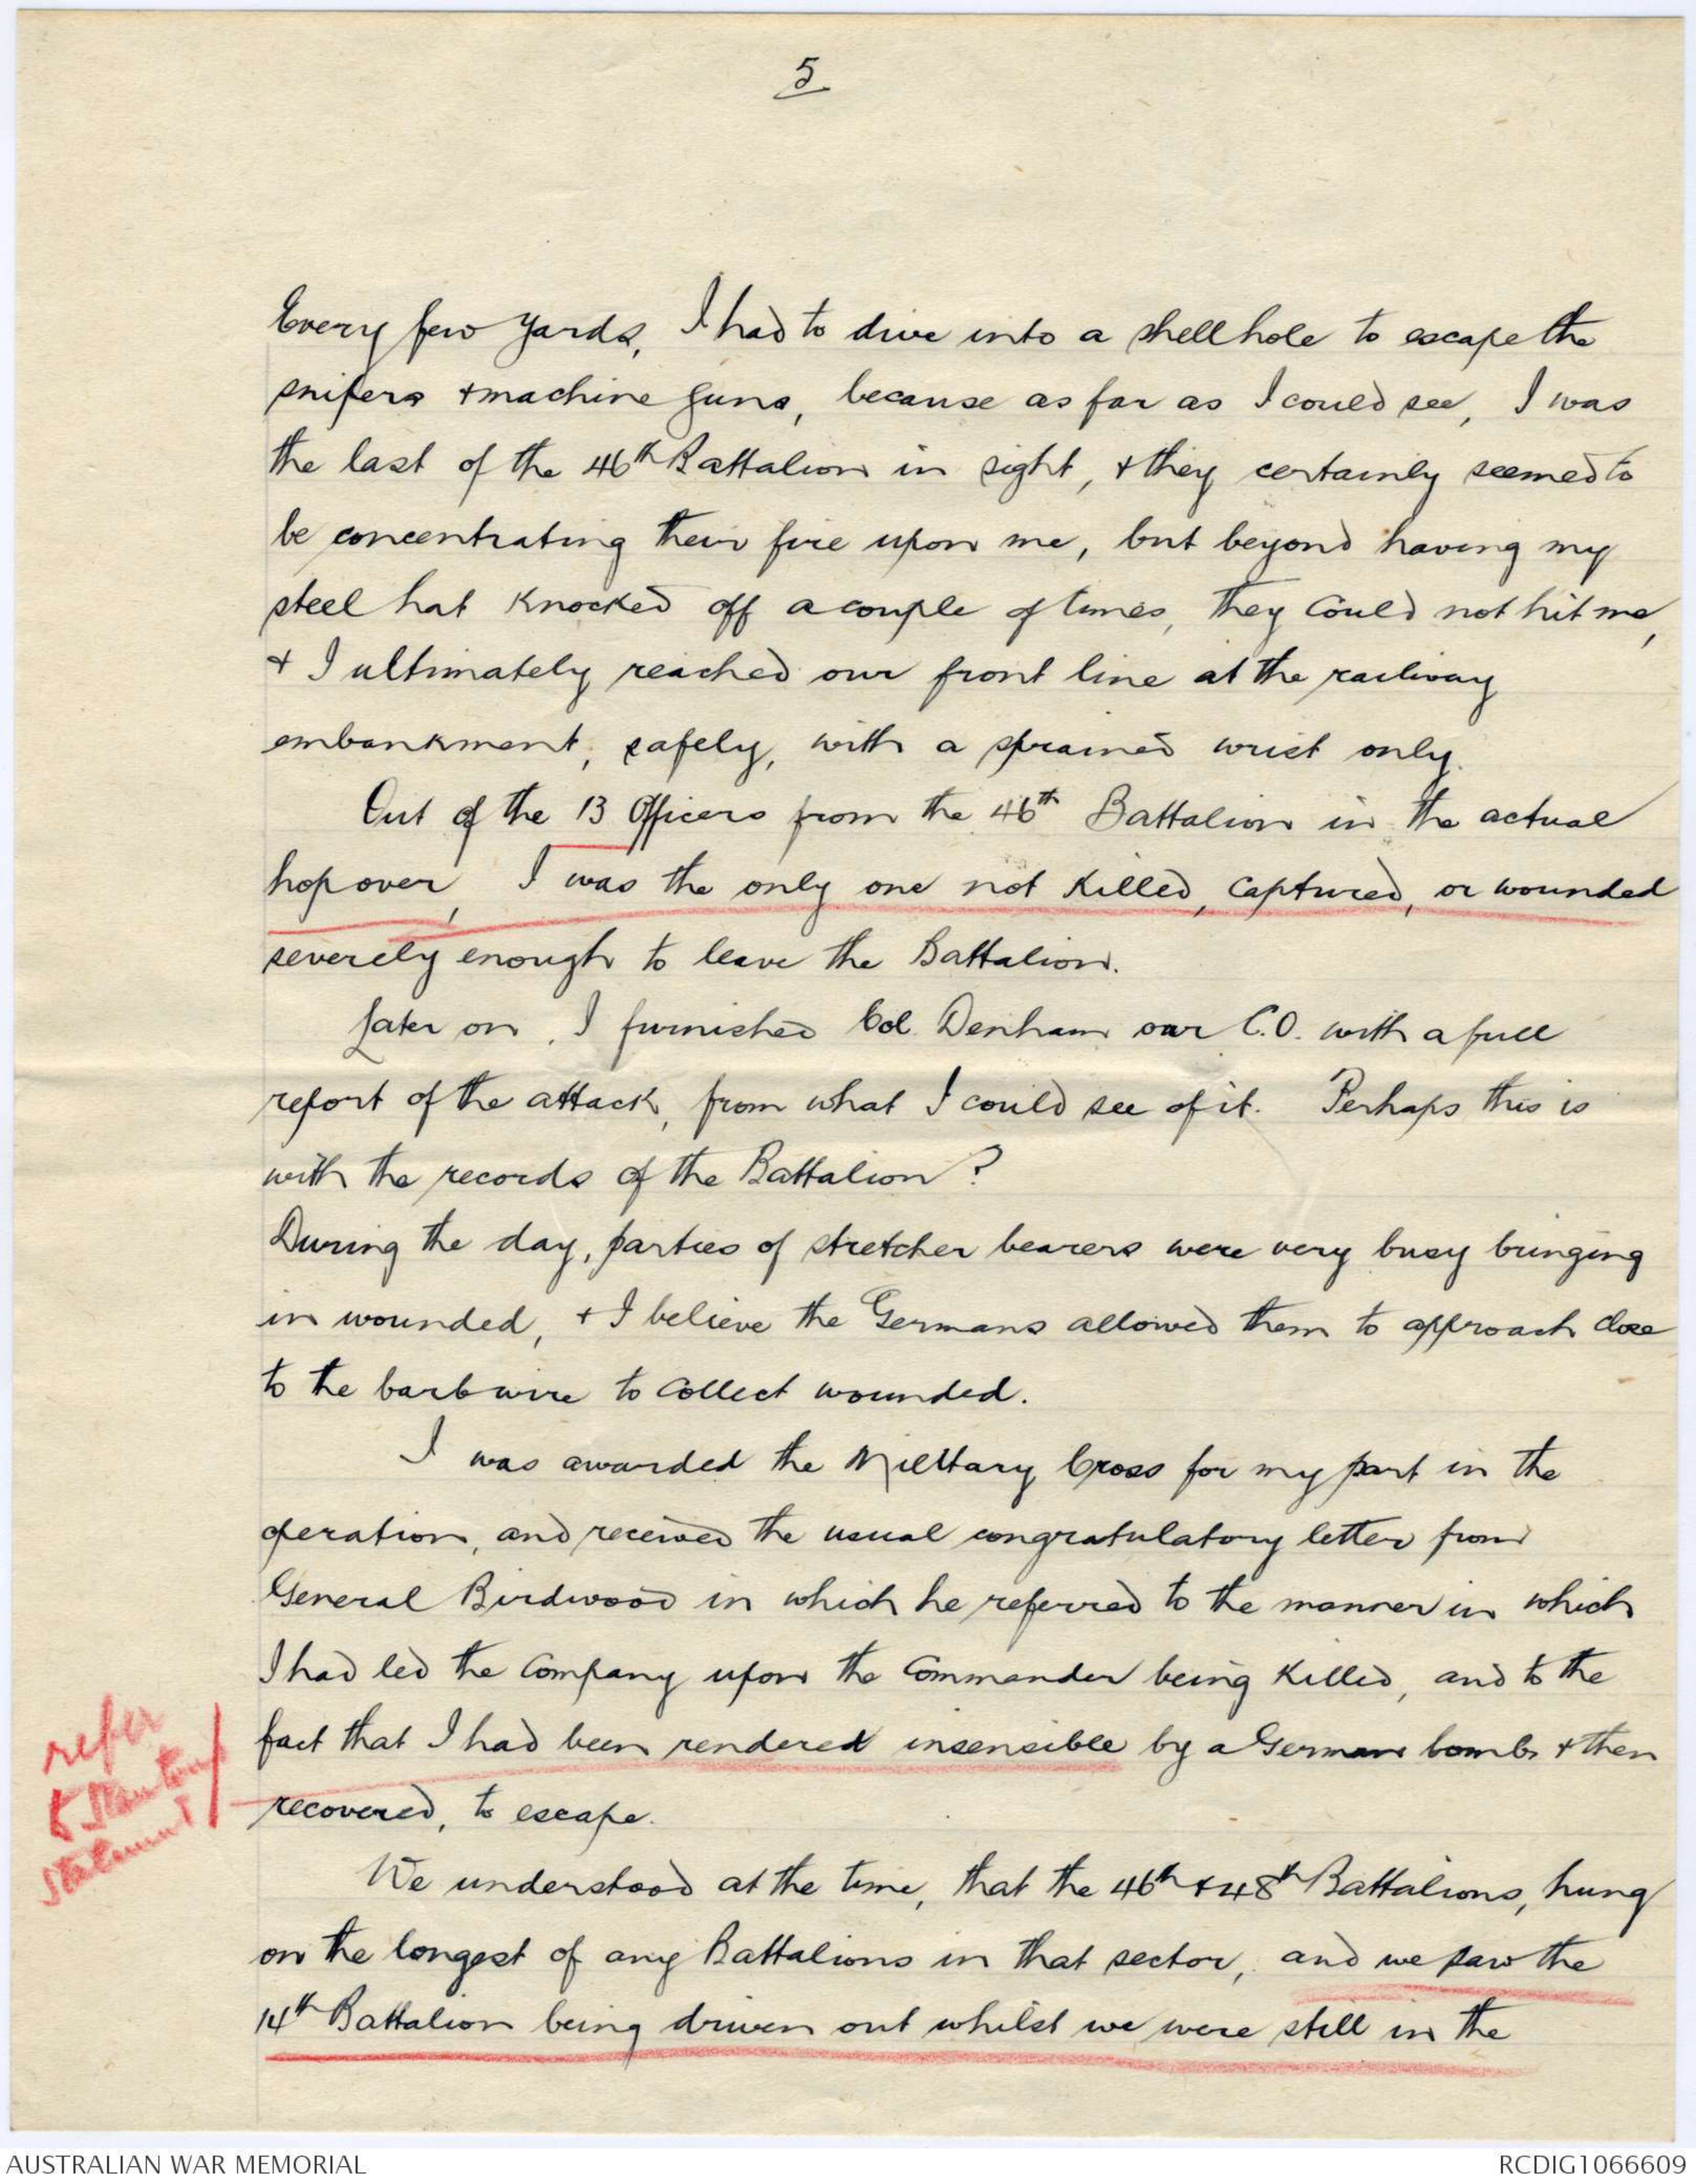 5
Every few yards, I had to dive into a shellhole to escape the
snipers + machine guns, because as far as I could see, I was
the last of the 46th Battalion in sight, + they certainly seemed to
be concentrating their fire upon me, but beyond having my
steel hat knocked off a couple of times, they could not hit me,
+ I ultimately reached our front line at the railway
embankment, safely, with a sprained wrist only.
Out of the 13 Officers from the 46th Battalion in the actual
hop over, I was the only one not killed, captured, or wounded
severely enough to leave the Battalion.
Later on, I furnished Col. Denham our C.O. with a full
report of the attack, from what I could see of it. Perhaps this is
with the records of the Battalion?
During the day, parties of stretcher bearers were very busy bringing
in wounded, + I believe the Germans allowed them to approach close
to the barbwire to collect wounded.
I was awarded the Military Cross for my part in the
operation, and received the usual congratulatory letter from
General Birdwood in which he referred to the manner in which
I had led the Company upon the Commander being killed, and to the
fact that I had been rendered insensible by a German bomb + then
recovered, to escape.
refer
statement
We understood at the time, that the 46th + 48th Battalions, hung
on the longest of any Battalions in that sector, and we saw the
14th Battalion being driven out whilst we were still in the
AUSTRALIAN WAR MEMORIAL
RCDIG1066609